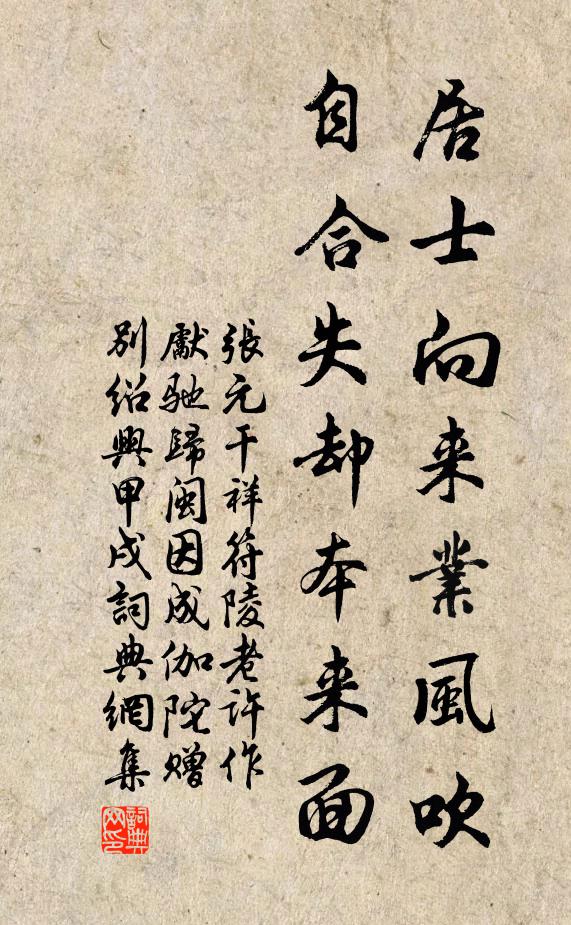 居士向来業風吹
自合失却本来面
張元干祥符陵老許作
獻馳歸閩因成伽陀贈
別紹興甲戌詞典網集
詞典网印